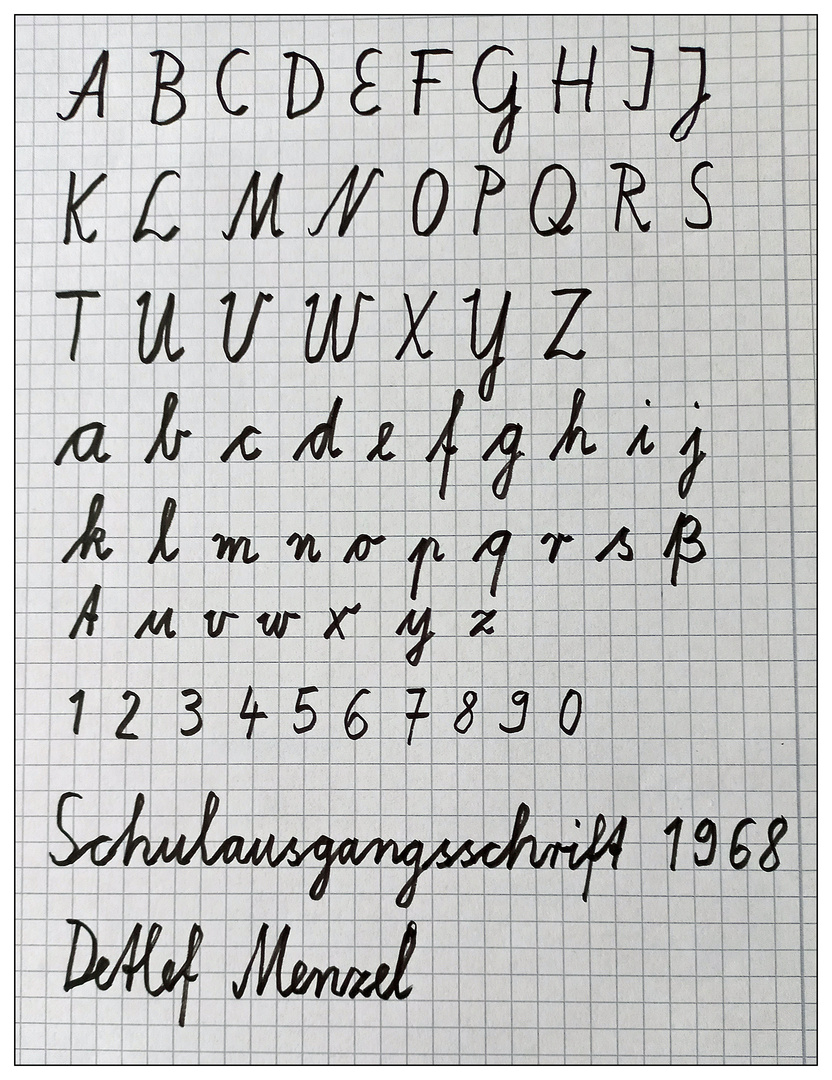 A B C D E F G H I J
K L M N O P Q R S
T U V W X Y Z
a b c d e f g h i j
k l m n o p q r s ß
t u v w x y z
1 2 3 4 5 6 7 8 9 0
Schulausgangsschrift 1968
Detlef Menzel